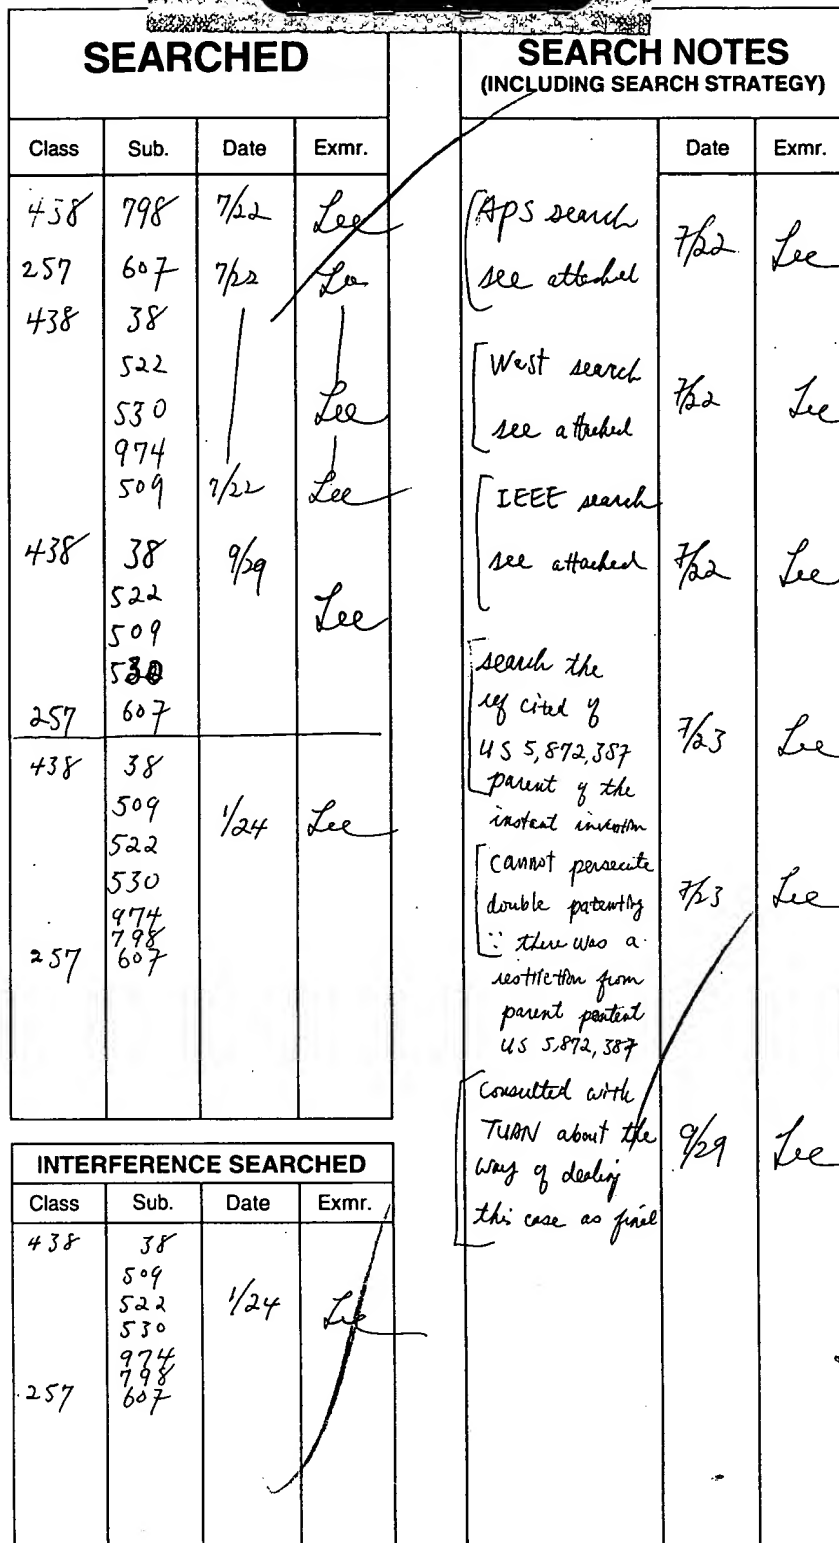 SEARCHED
Class Sub. Date Exmr.
438 798 7/22 Lee
257 607 7/22 Lee
438 38
522
530 Lee
974
509 7/22 Lee
438 38 9/29
522
509 Lee
530
257 607
438 38
509 1/24 Lee
522
530
974
798
257 607
INTERFERENCE SEARCHED
Class Sub. Date Exmr.
438 38
509
522 1/24 Lee
530
974
798
257 607
SEARCH NOTES
(INCLUDING SEARCH STRATEGY)
Date Exmr.
APS search
7/22 Lee
see attached
West search
7/22 Lee
see attached
IEEE search
see attached 7/22 Lee
search the
ref cited of
US 5,872,387 7/23 Lee
parent of the
instant invention
Cannot persecute
double patenting 7/23 Lee
∵ there was a
restriction from
parent pantent
US 5,872,387
Consulted with
TUAN about the 9/29 Lee
way of dealing
this case as final